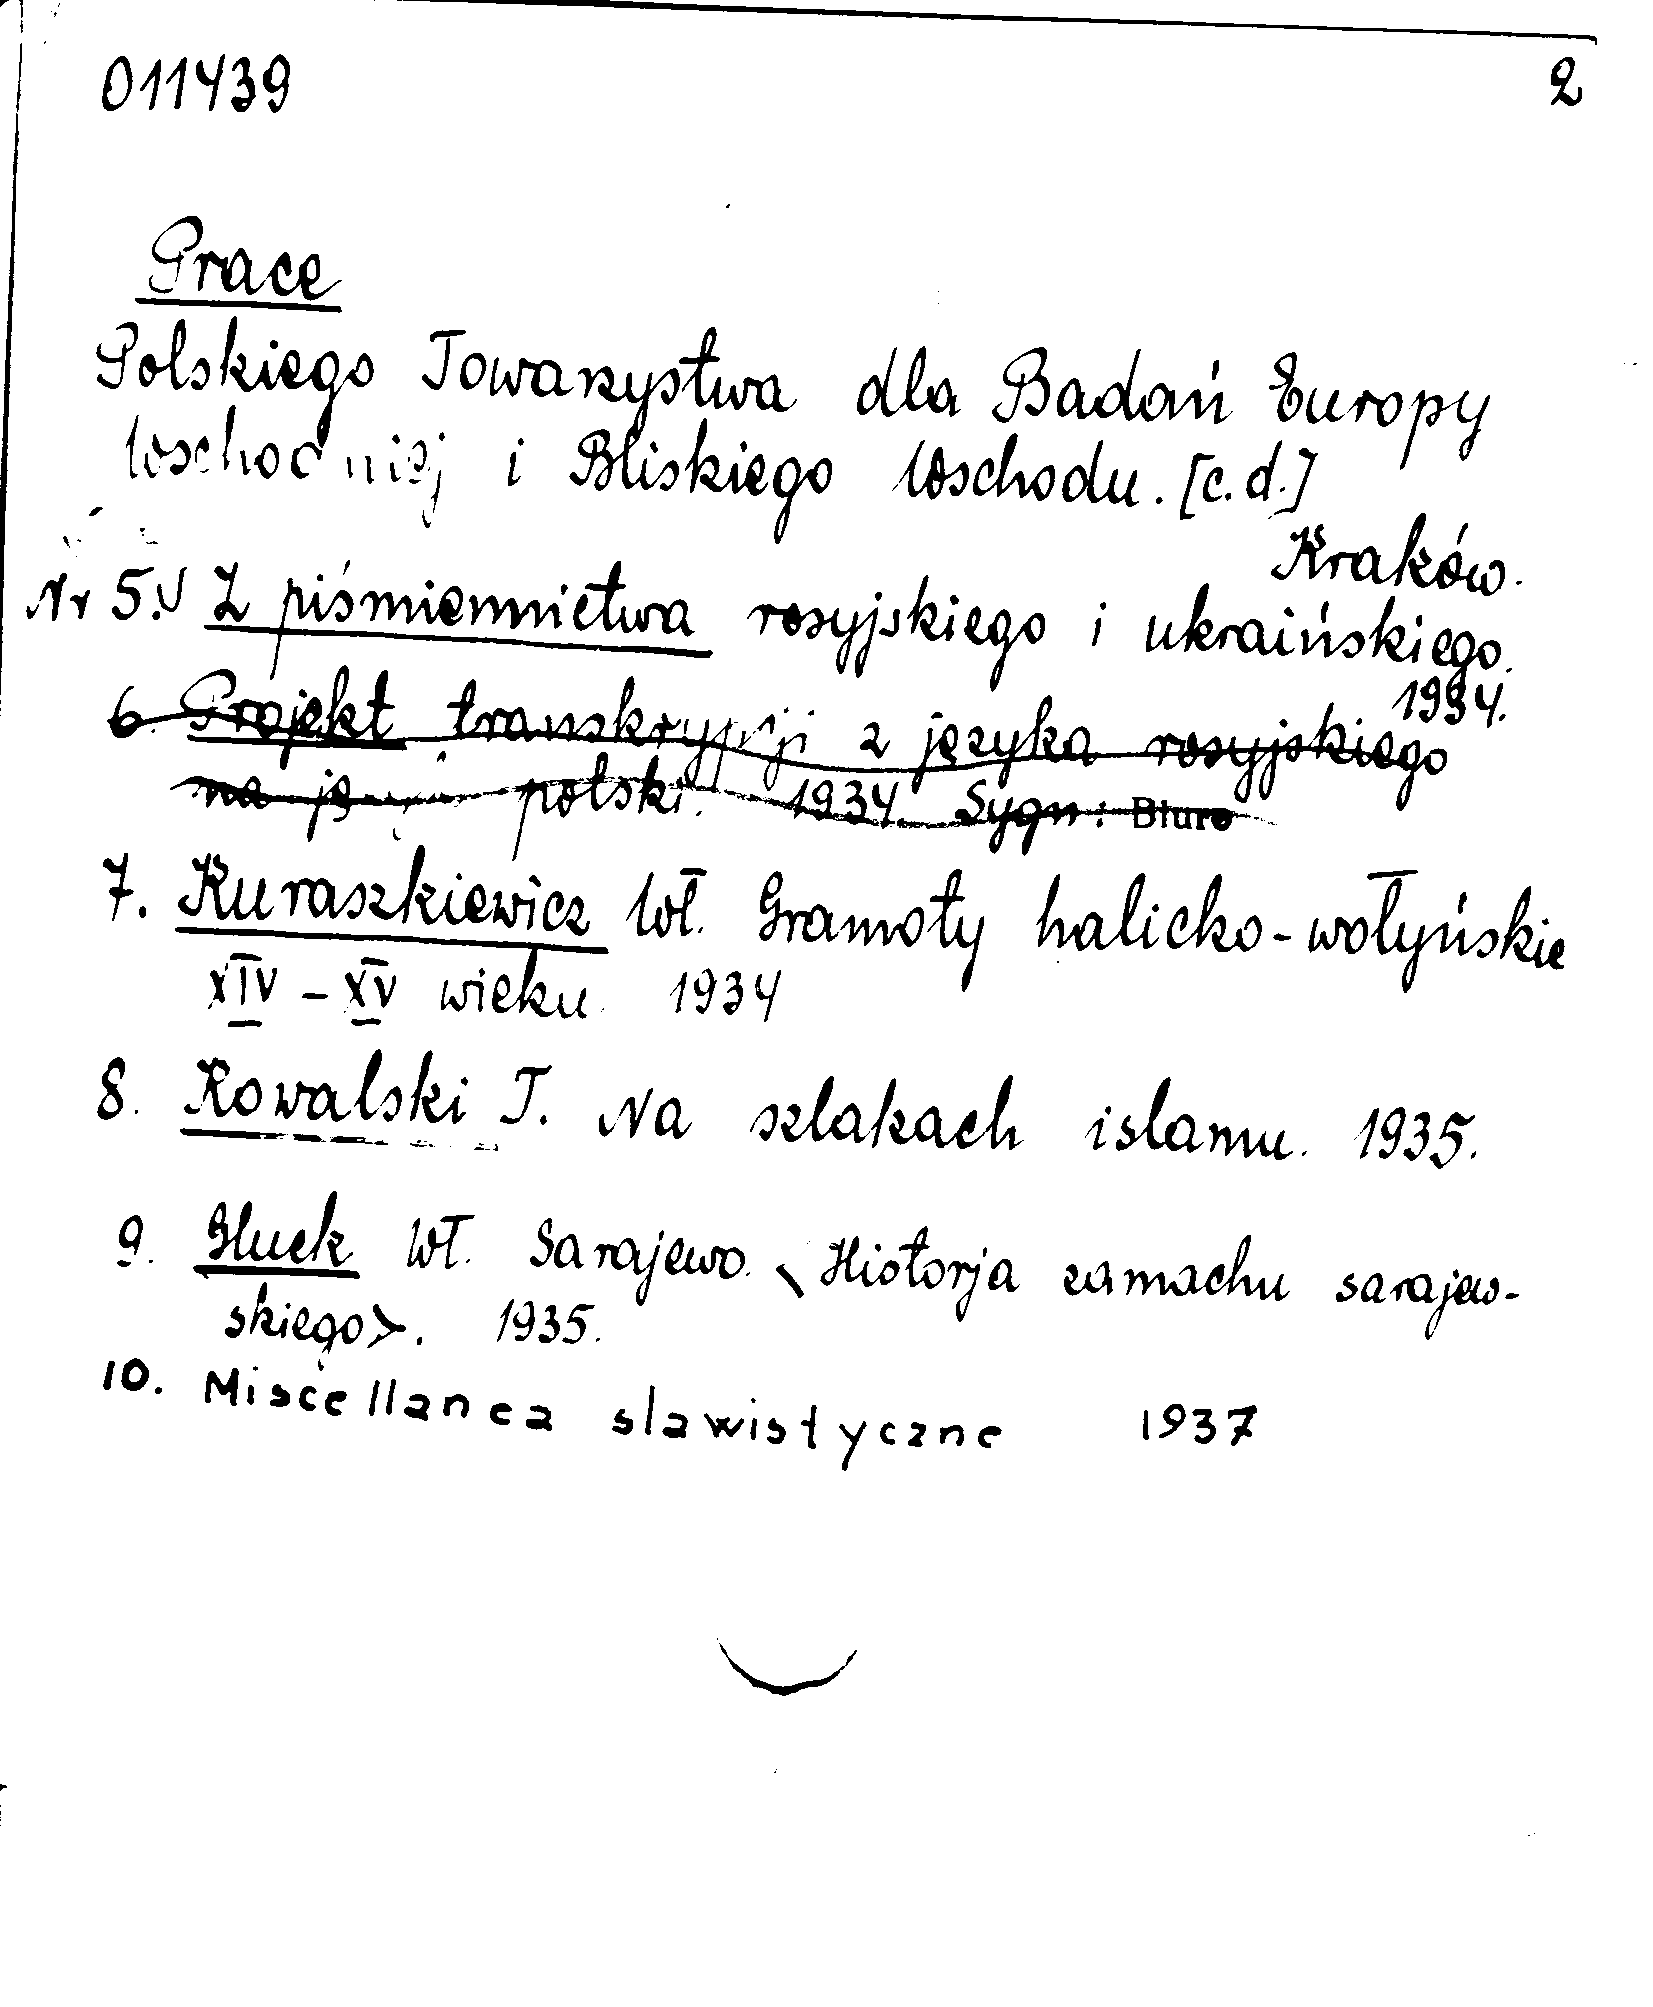 011439 2
Prace
Polskiego Towarzystwa dla Badań Europy
Wschodniej i Bliskiego Wschodu. [c.d.]
Kraków.
Nr 5. Z piśmiennictwa rosyjskiego i ukraińskiego.
1934.
6. Projekt transkrypcji z języka rosyjskiego
na język polski. 1934. Sygn: Biuro
7. Kuraszkiewicz Wł. Gramoty halicko-wołyńskie
XIV – XV wieku. 1934
8. Kowalski T. Na szlakach islamu. 1935.
9. Gluck Wł. Sarajewo. \ Historja zamachu sarajew-
skiego>. 1935.
10. Miscellanea slawistyczne 1937